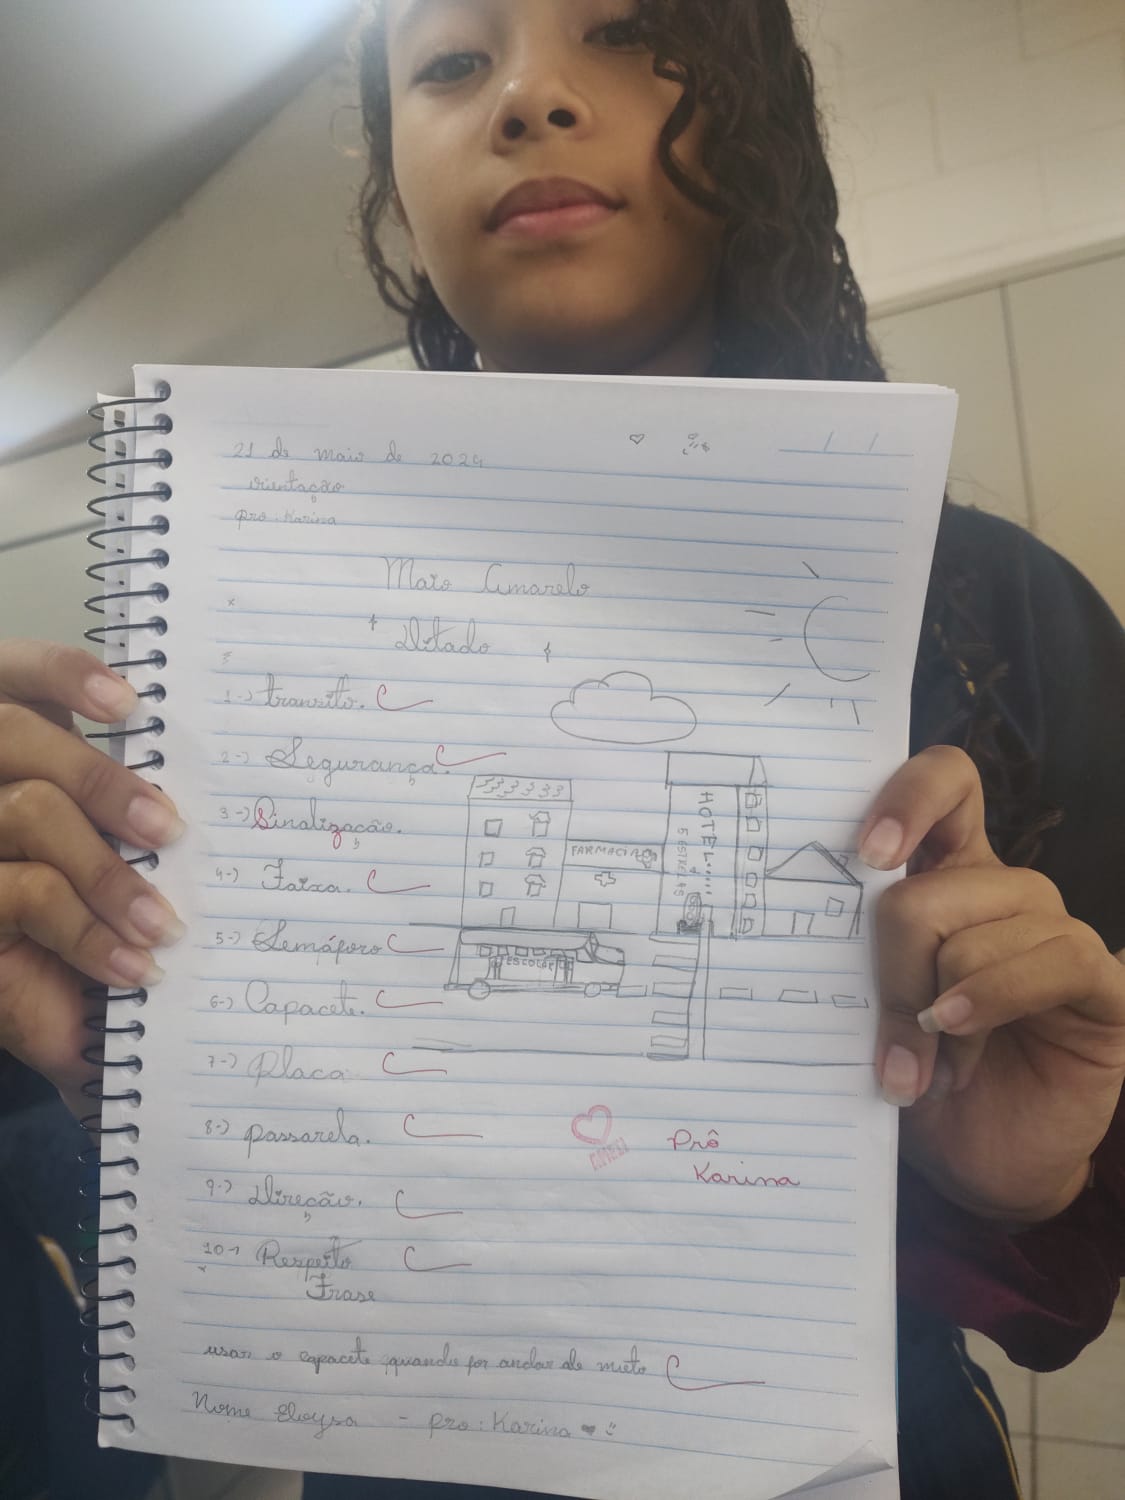 21 de maio de 2024
orientação
pro: Karina
Maio Amarelo
Ditado
1-) transito.
2-) Segurança.
3-) Sinalização.
4-) Faixa.
5-) Semáforo
6-) Capacete.
7-) Placa
8-) passarela.
9-) Direção.
10-) Respeito
Frase
usar o capacete quando for andar de moto
Nome Eloysa - pro: Karina
FARMACIA
HOTEL
5 ESTRELAS
ESCOLAR
Prô
Karina